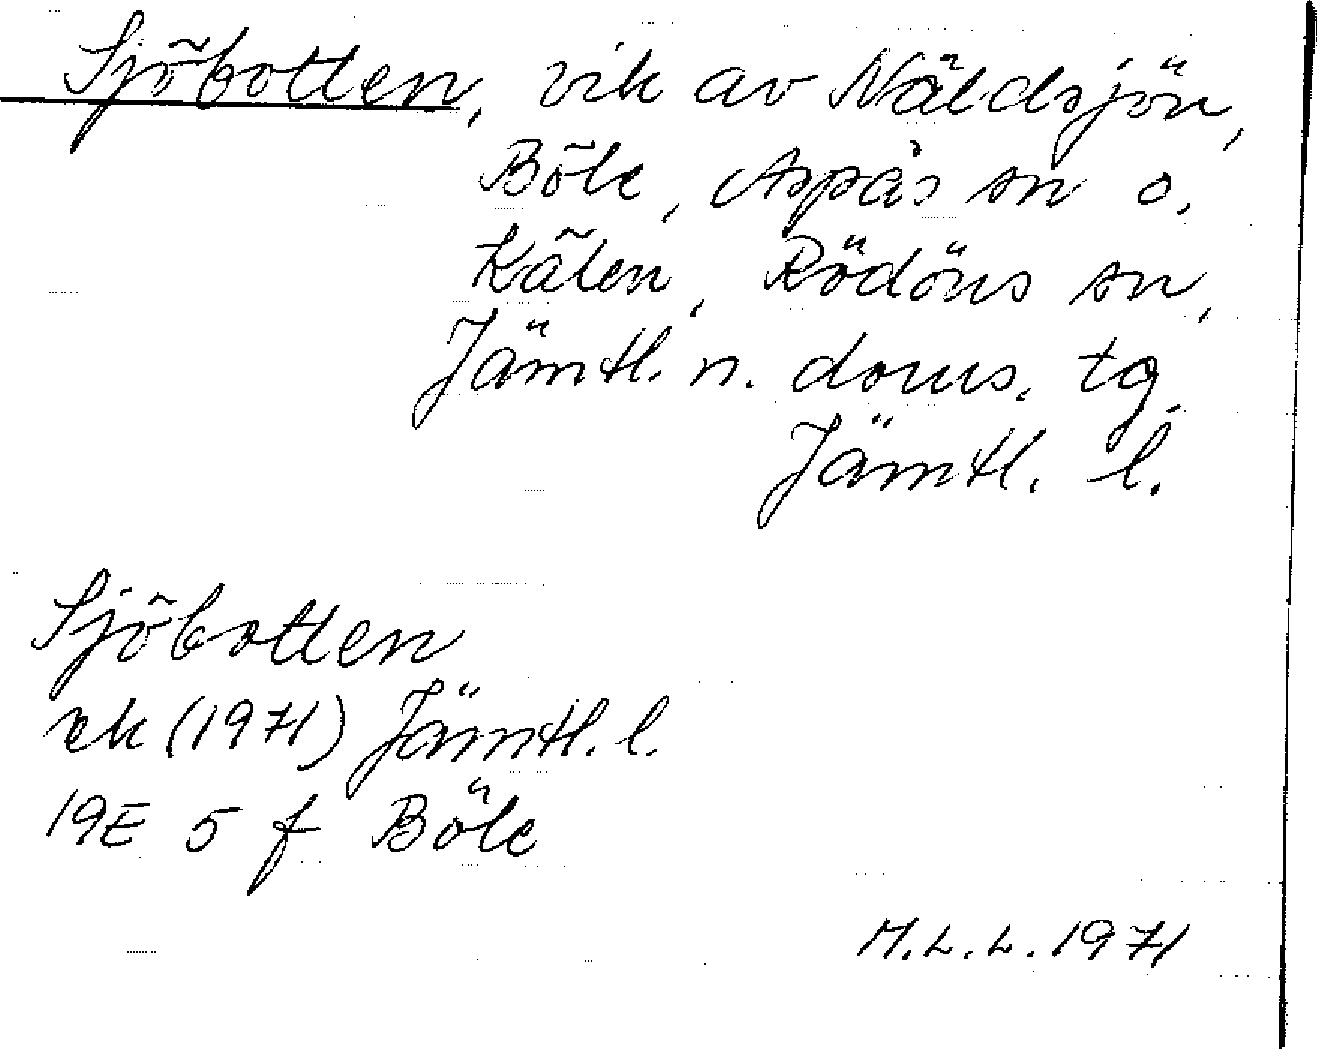 Sjöbotten, vik av Näldsjön,
Böle, Aspås sn o.
Kälen, Rödöns sn,
Jämtl. n. doms. tg
Jämtl. l.
Sjöbotten
ek (1971) Jämtl. l.
19E 5 f Böle
M.L.L. 1971